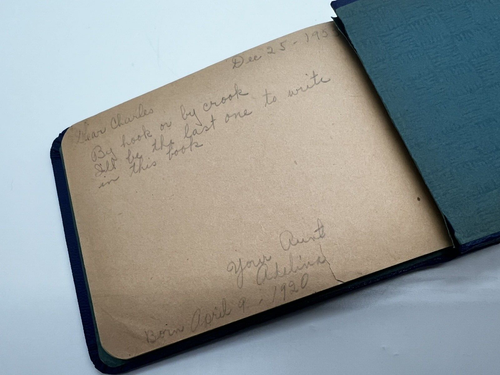 Dec 25 - 193
Dear Charles
By hook or by crook
I'll be the last one to write
in this book
Your Aunt
Adelina
Born April 9, 1920